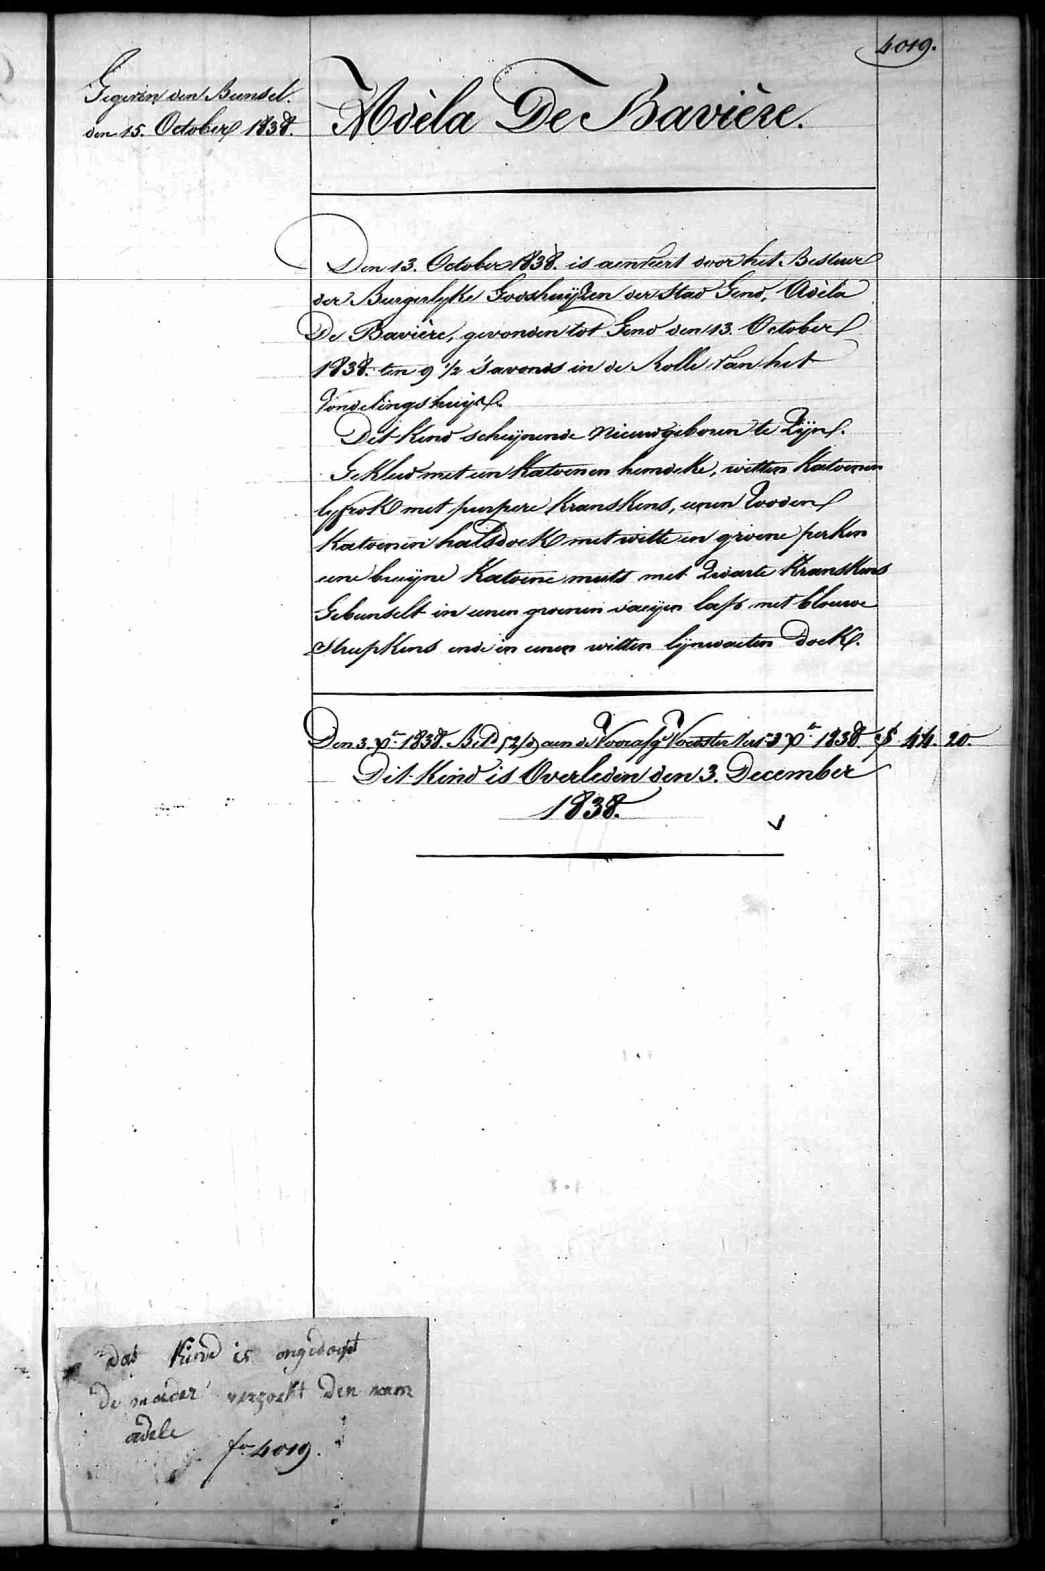 4019.
Gegeven den Bunsel.
den 15. October 1838.
Adèla De Bavière.
Den 13. October 1838. is aenveert door het Bestuer
der Burgerlyke Godshuijzen der Stad Gend, Adèla
De Bavière, gevonden tot Gend den 13. October
1838. ten 9 1/2 S'avonds in de Rolle van het
Vondelingshuijs.
Dit Kind scheijnende Nieuwgeboren te Zijn.
Gekleed met een Katoenen hemdeke, witten Katoenen
lyfrok met purpere Kranskens, eenen Rooden
Katoenen halsdoek met witte en groene perken
eene bruijne Katoene muts met Zwarte Kranskens
Gebunselt in eenen groenen saeijen laps met blouwe
Streepkens ende in eenen witten lijnwaeten doek.
Den 3. Xr. 1838. aen de Voorafg Voedster 3 Xr 1838 44. 20.
Dit Kind is Overleden den 3. December
1838.
dat kind is ongedopt
de moeder verzoekt den nam
adele
fo 4019.